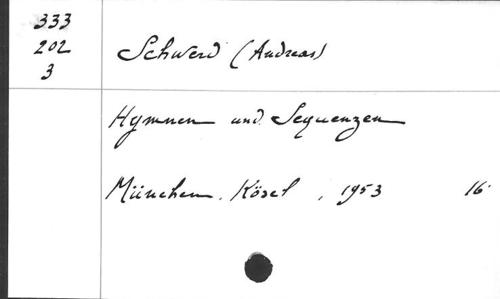 333
202
3
Schwerd (Andreas)
Hymnen und Sequenzen
München, Kösel, 1953 16°